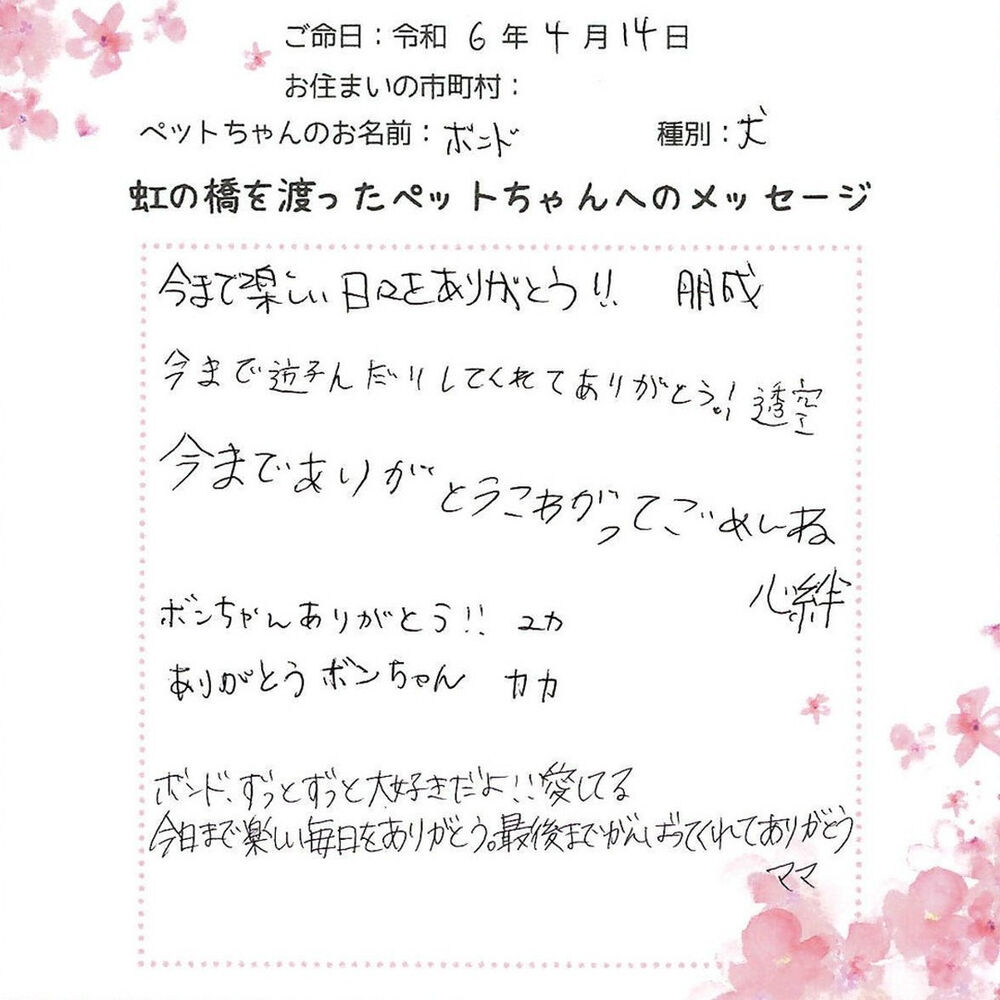 ご命日：令和 6 年 4 月 14 日
お住まいの市町村：
ペットちゃんのお名前：ボンド 種別：犬
虹の橋を渡ったペットちゃんへのメッセージ
今まで楽しい日々をありがとう!! 朋成
今まで遊んだりしてくれてありがとう。! 透空
今までありがとうこわがってごめんね
心絆
ボンちゃんありがとう!! ユカ
ありがとうボンちゃん カカ
ボンド、ずっとずっと大好きだよ!!愛してる
今日まで楽しい毎日をありがとう。最後までがんばってくれてありがとう
ママ